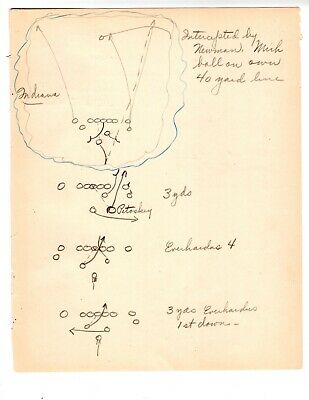 Intercepted by
Newman. Mich
ball on own
40 yard line
Indiana
3 yds
Petoskey
Everhardus 4
3 yds Everhardus
1st down -